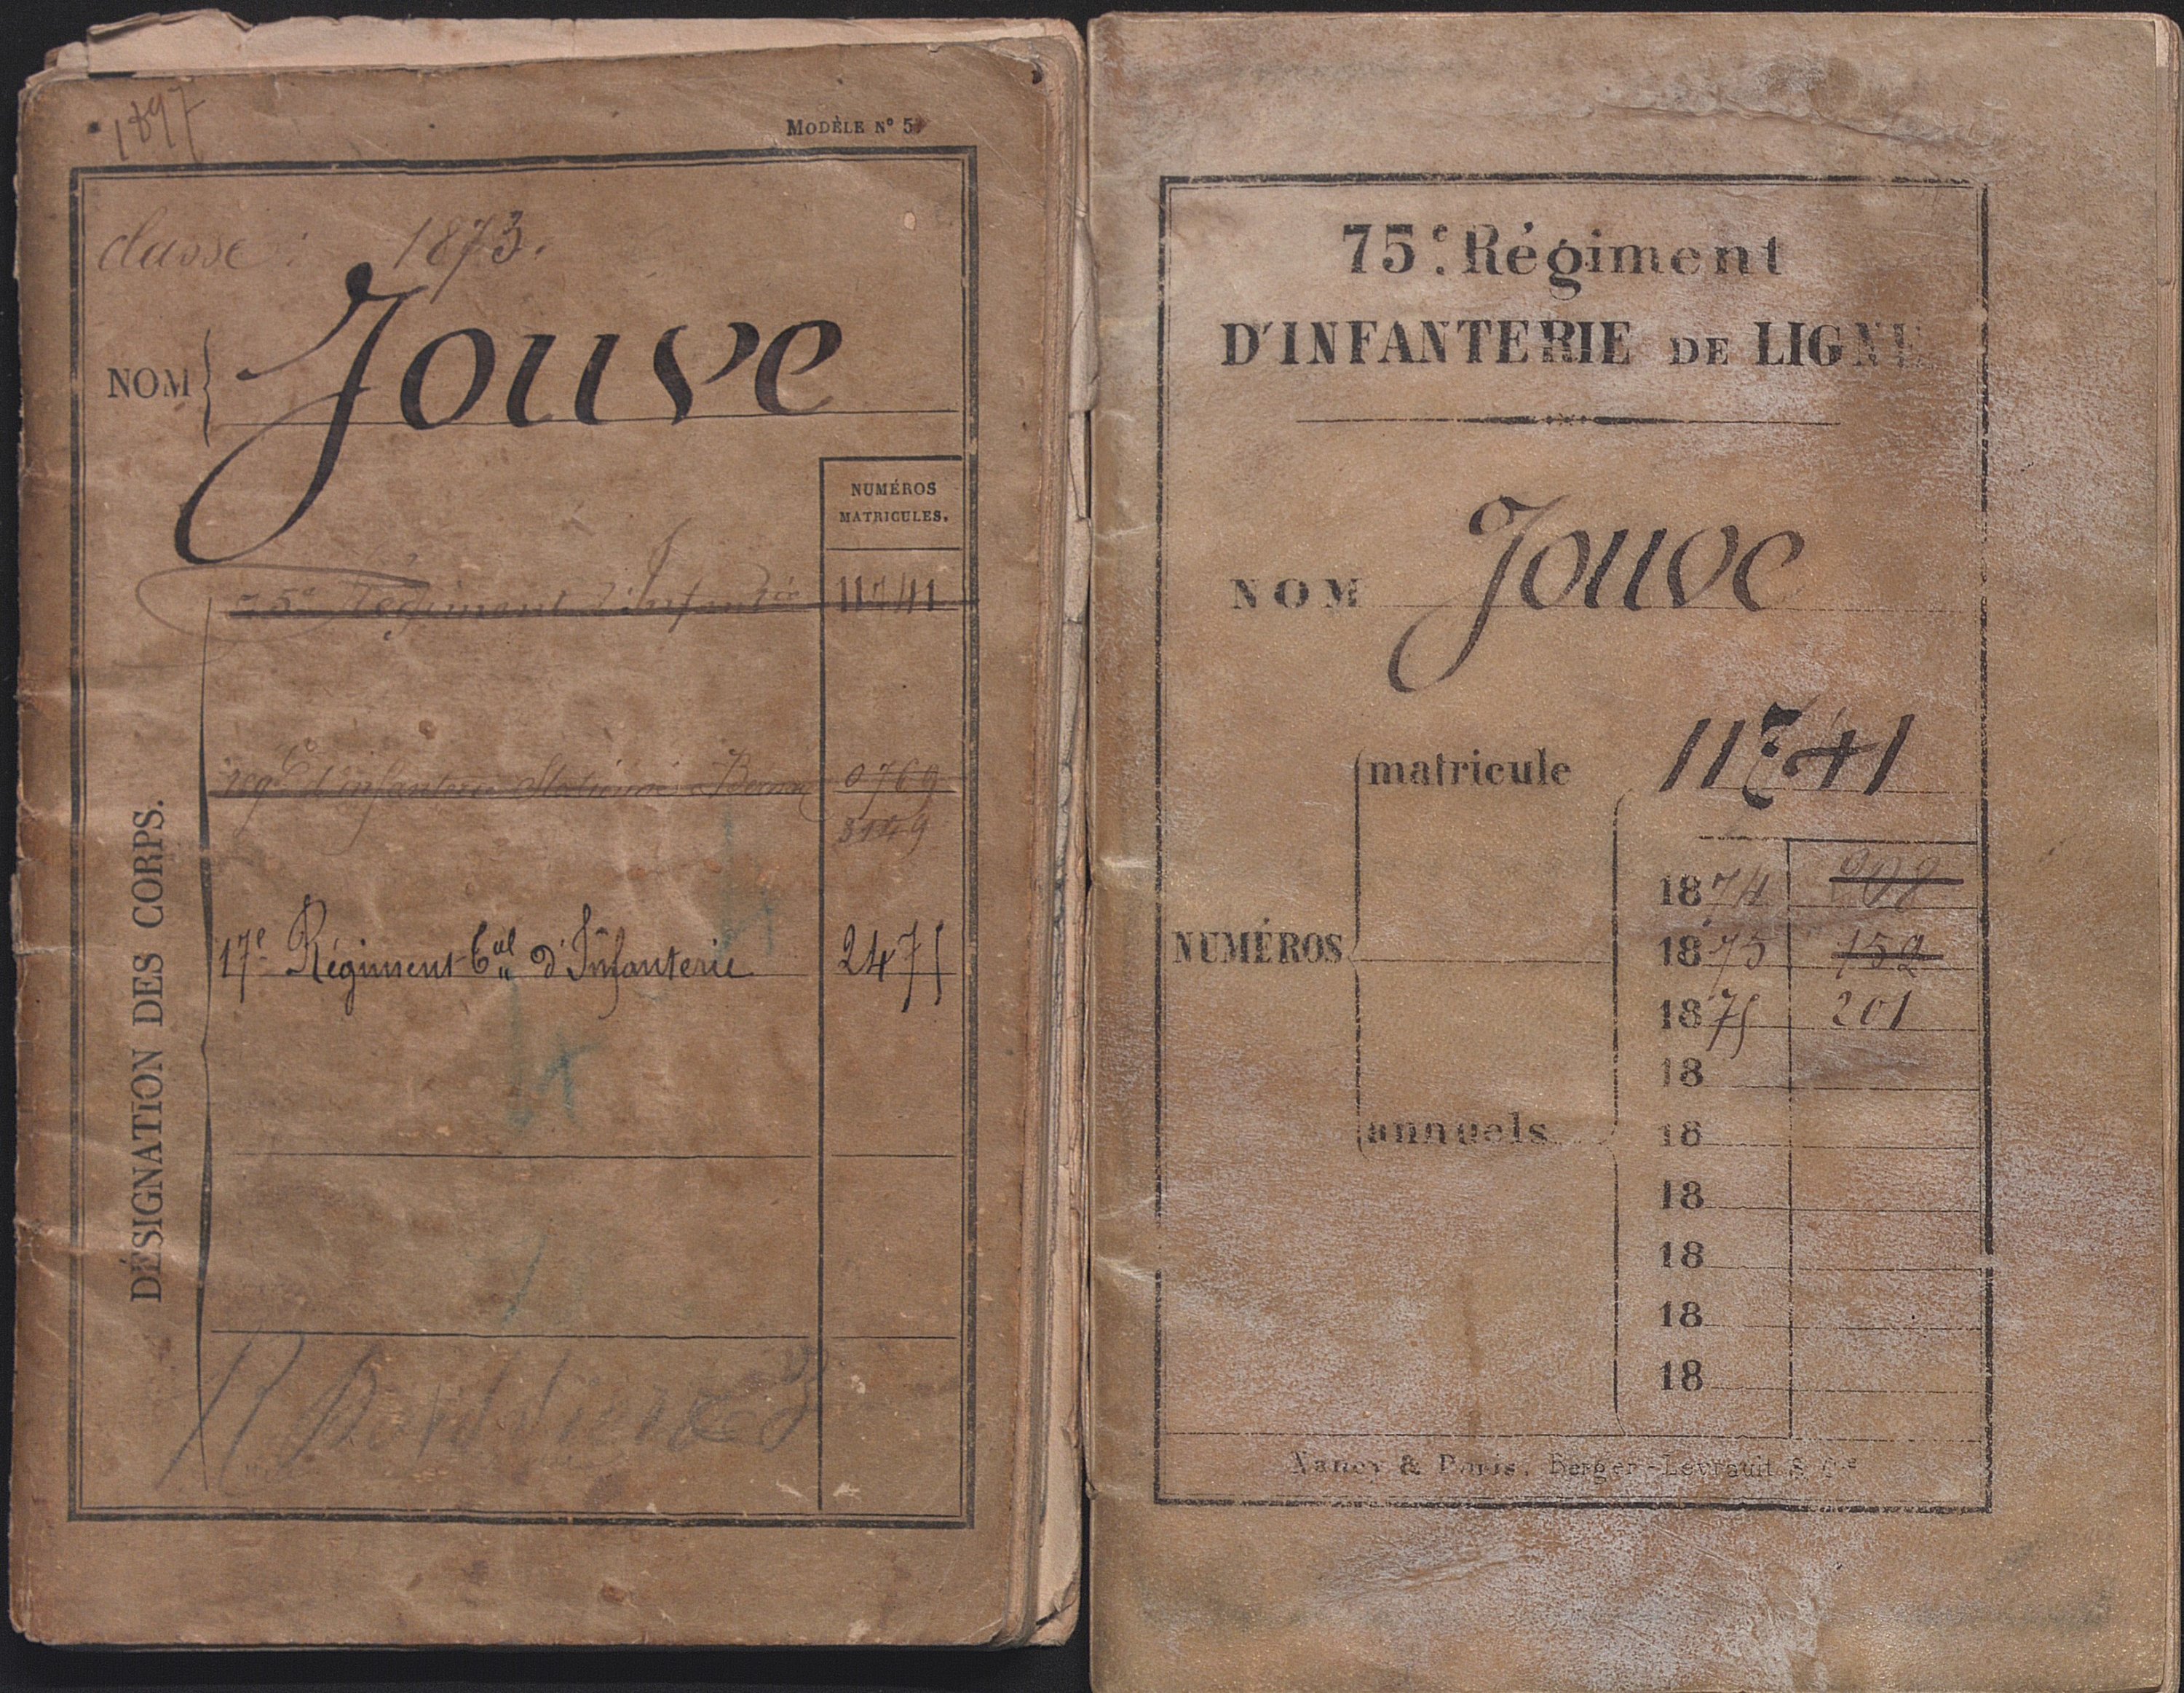 1897
MODÈLE Nº 5
classe : 1873.
NOM Jouve
NUMÉROS
MATRICULES.
75e Régiment d'Infanterie 11741
d'infanterie 0769
3149
17e Régiment tal d'Infanterie 2475
DÉSIGNATION DES CORPS.
75e. Régiment
D'INFANTERIE DE LIGNE
NOM Jouve
matricule 11741
1874 208
NUMÉROS
1875 152
1875 201
18
annuels 18
18
18
18
18
Nancy & Paris. Berger-Levrault & Cie